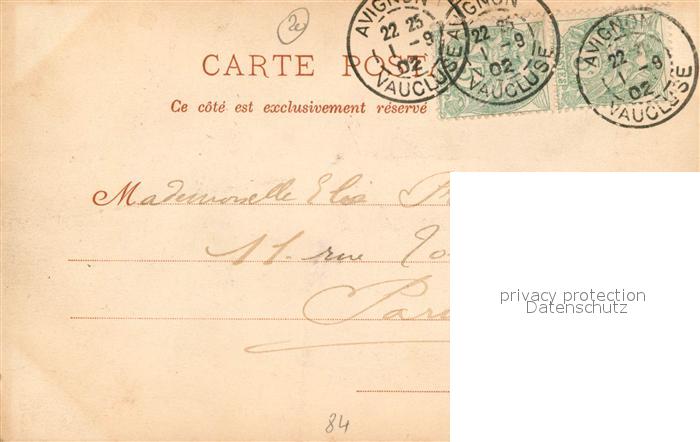 2e
AVIGNON
22 25
1 - 9
02
VAUCLUSE
AVIGNON
22 25
1 - 9
02
VAUCLUSE
AVIGNON
22
1 - 9
02
VAUCLUSE
CARTE POSTA
Ce côté est exclusivement réservé
Mademoiselle Elis
11. rue
Paris
privacy protection
Datenschutz
84